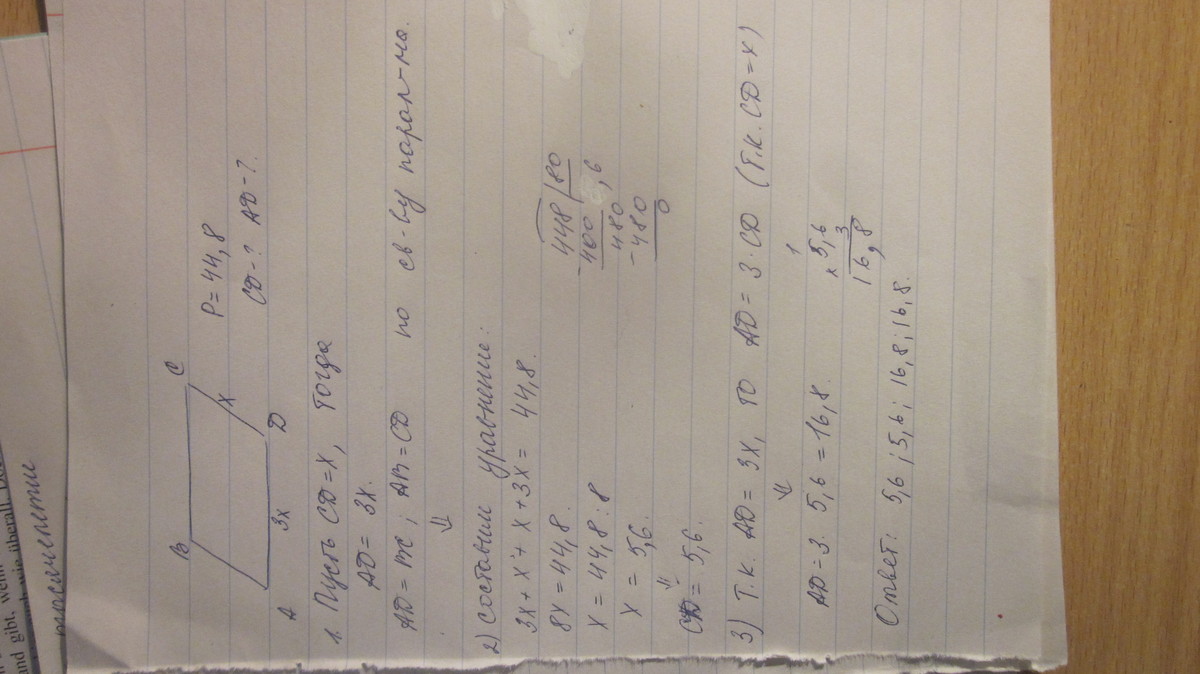 B
C
A
D
3x
x
P = 44,8
CD-? AD-?
1. Пусть CD = x, тогда
AD = 3x.
AD = BC; AB = CD по св-ву парал-ма.
⇓
2) составим уравнение:
3x + x + x + 3x = 44,8.
8x = 44,8.
x = 44,8 : 8
x = 5,6.
⇓
CD = 5,6.
448 | 80
-400
,6
480
-480
0
3) Т.к. AD = 3x, то AD = 3 · CD (т.к. CD = x)
⇓
AD = 3 · 5,6 = 16,8.
1
× 5,6
3
16,8
Ответ: 5,6 ; 5,6 ; 16,8 ; 16,8.
and gibt, wenn
wie überall